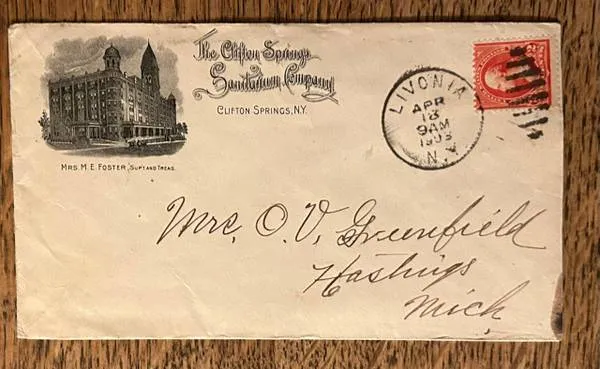 The Clifton Springs
Sanitarium Company
CLIFTON SPRINGS, N.Y.
MRS. M. E. FOSTER, SUP'T AND TREAS.
LIVONIA
APR
13
9AM
N.Y.
Mrs. O. V. Greenfield
Hastings
Mich